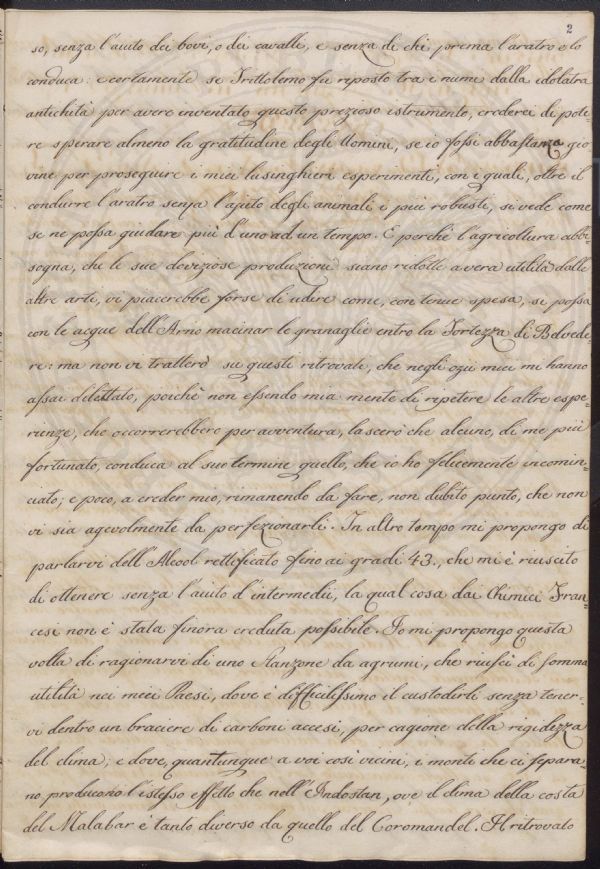 2
so, senza l'aiuto dei bovi, o dei cavalli, e senza di chi prema l'aratro e lo
conduca: e certamente se Trittolemo fu riposto tra i numi dalla idolatra
antichità per avere inventato questo prezioso istrumento, crederei di pote-
re sperare almeno la gratitudine degli Uomini, se io fossi abbastanza gio
vine per proseguire i miei lusinghieri esperimenti, con i quali, oltre il
condurre l'aratro senza l'ajuto degli animali i più robusti, si vede come
se ne possa guidare più d'uno ad un tempo. E perchè l'agricoltura abbi-
sogna, che le sue doviziose produzioni siano ridotte a vera utilità dalle
altre arti, vi piacerebbe forse di udire come, con tenue spesa, si possa
con le acque dell'Arno macinar le granaglie entro la Fortezza di Belvede-
re: ma non vi tratterò su questi ritrovati, che negli ozii miei mi hanno
assai dilettato, poichè non essendo mia mente di ripetere le altre espe-
rienze, che occorrerebbero per avventura, lascerò che alcuno, di me più
fortunato, conduca al suo termine quello, che io ho felicemente incomin-
ciato; e poco, a creder mio, rimanendo da fare, non dubito punto, che non
vi sia agevolmente da perfezionarli. In altro tempo mi propongo di
parlarvi dell'Alcool rettificato fino ai gradi 43., che mi è riuscito
di ottenere senza l'aiuto d'intermedii, la qual cosa dai Chimici Fran-
cesi non è stata finora creduta possibile. Io mi propongo questa
volta di ragionarvi di uno Stanzone da agrumi, che riuscì di somma
utilità nei miei Paesi, dove è difficilissimo il custodirli senza tener-
vi dentro un braciere di carboni accesi, per cagione della rigidezza
del clima, e dove, quantunque a voi così vicini, i monti che ci separa-
no producono l'istesso effetto che nell'Indostan, ove il clima della costa
del Malabar è tanto diverso da quello del Coromandel. Il ritrovato